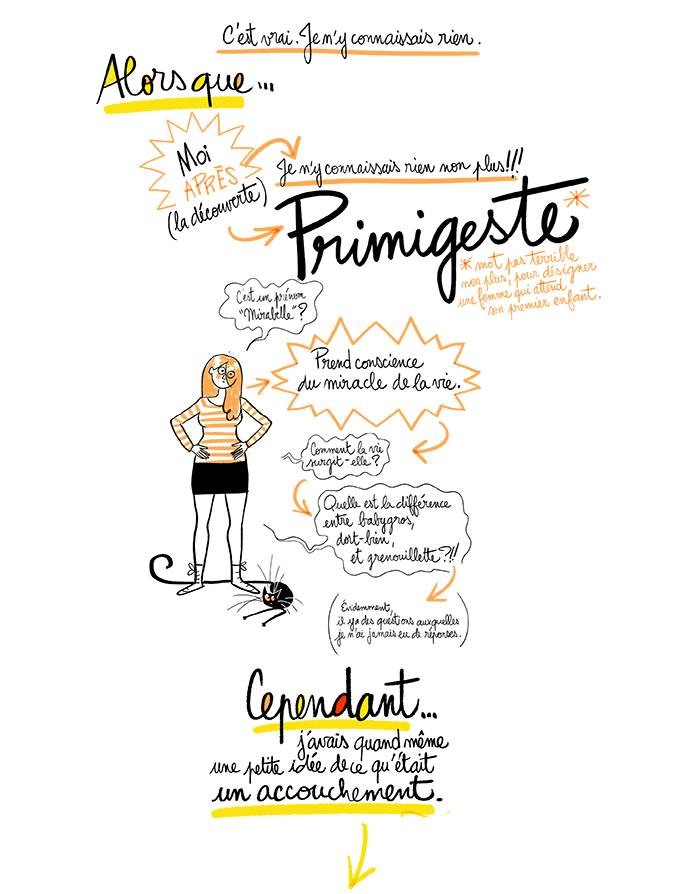 C'est vrai. Je n'y connaissais rien.
Alors que...
Moi
APRÈS
(la découverte)
Je n'y connaissais rien non plus!!!
Primigeste*
* mot pas terrible
non plus, pour désigner
une femme qui attend
son premier enfant.
C'est un prénom
"Mirabelle"?
Prend conscience
du miracle de la vie.
Comment la vie
surgit-elle?
Quelle est la différence
entre babygros,
dort-bien,
et grenouillette?!!
(Évidemment,
il y a des questions auxquelles
je n'ai jamais eu de réponses.)
Cependant...
j'avais quand même
une petite idée de ce qu'était
un accouchement.